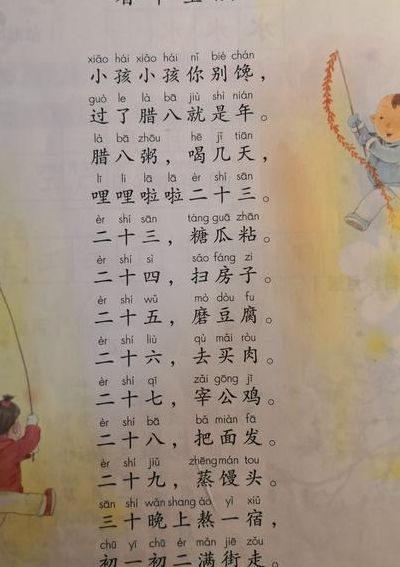 xiǎo hái xiǎo hái nǐ bié chán
小孩小孩你别馋，
guò le là bā jiù shì nián
过了腊八就是年。
là bā zhōu hē jǐ tiān
腊八粥，喝几天，
lī lī lā lā èr shí sān
哩哩啦啦二十三。
èr shí sān táng guā zhān
二十三，糖瓜粘。
èr shí sì sǎo fáng zi
二十四，扫房子。
èr shí wǔ mò dòu fu
二十五，磨豆腐。
èr shí liù qù mǎi ròu
二十六，去买肉。
èr shí qī zǎi gōng jī
二十七，宰公鸡。
èr shí bā bǎ miàn fā
二十八，把面发。
èr shí jiǔ zhēng mán tou
二十九，蒸馒头。
sān shí wǎn shang áo yì xiǔ
三十晚上熬一宿，
chū yī chū èr mǎn jiē zǒu
初一初二满街走。